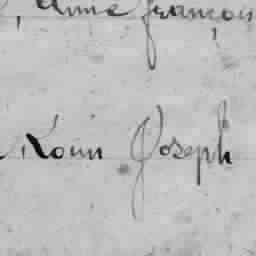 , Anne françois
Louis Joseph